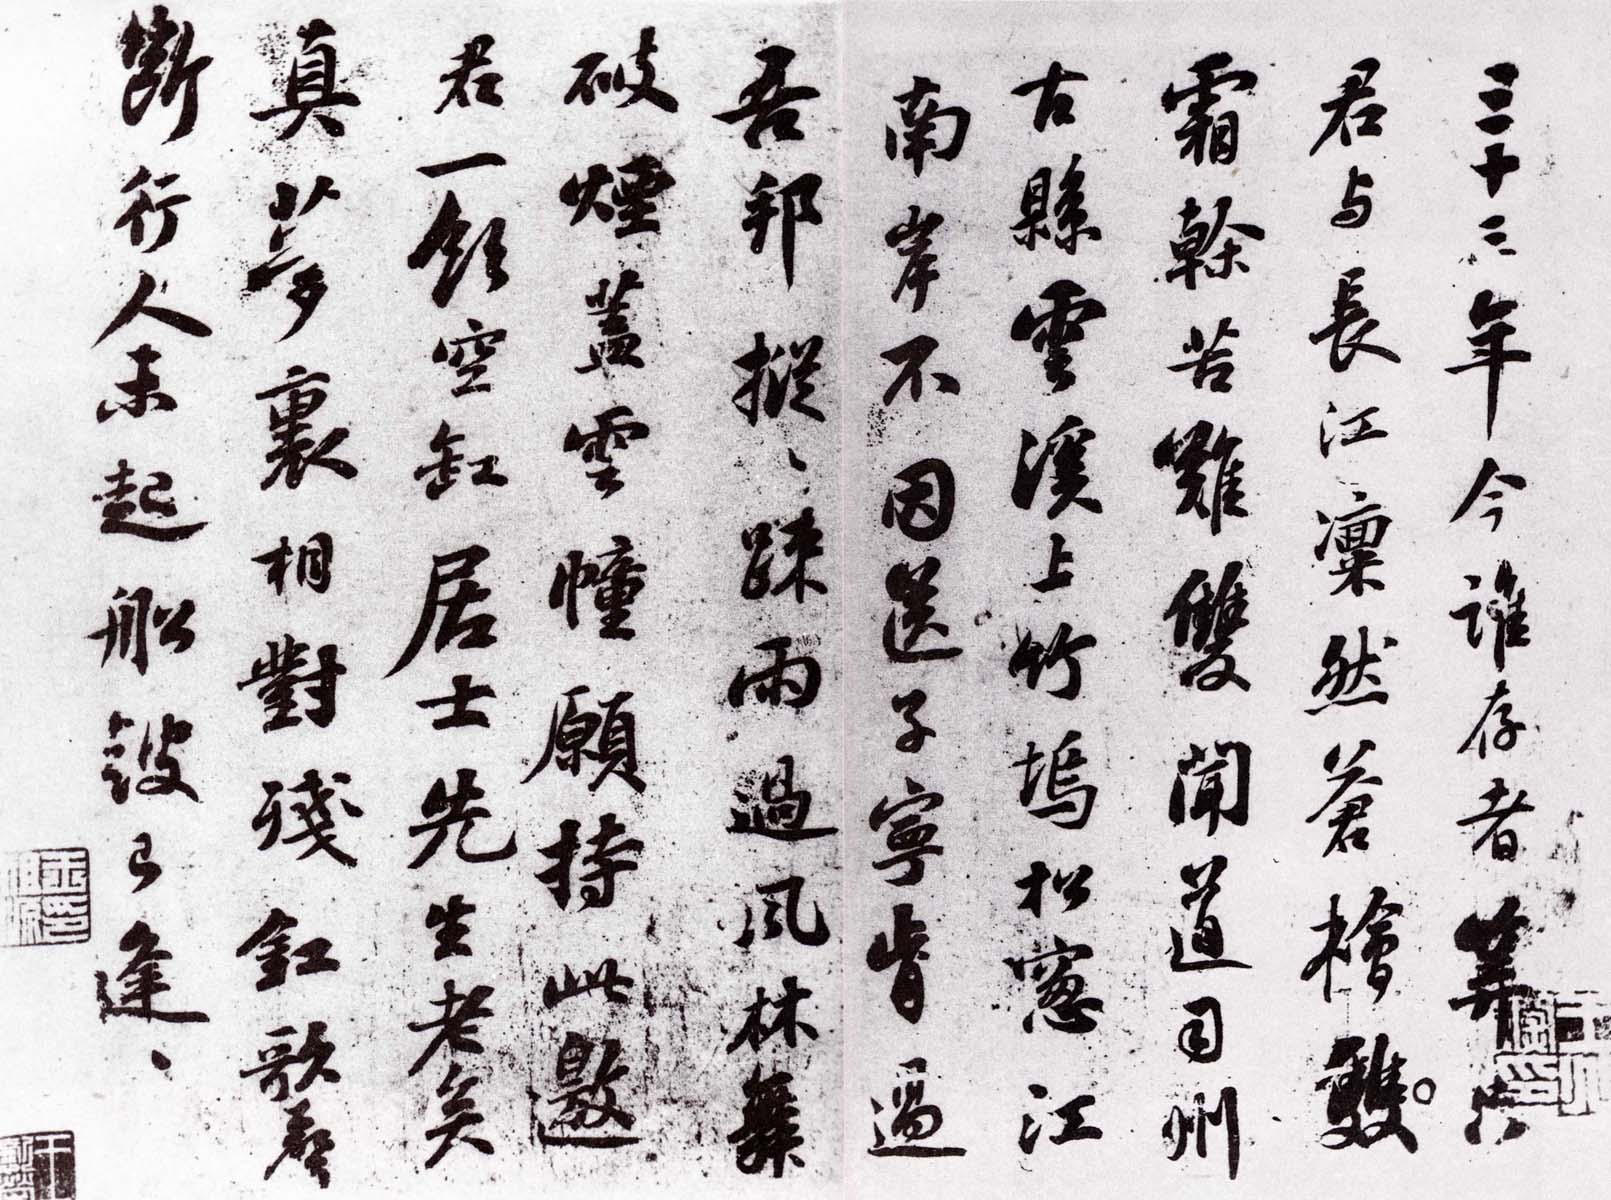 三十三年今誰存者算只
君与長江凛然蒼檜雙
霜幹苦難雙聞道司州
古縣雲溪上竹塢松窓江
南岸不因送子寧肯過
吾邦摐〻踈雨過風林舞
破煙蓋雲幢願持此邀
君一飲空缸居士先生老矣
真夢裏相對殘釭歌聲
斷行人未起船鼓已逢〻